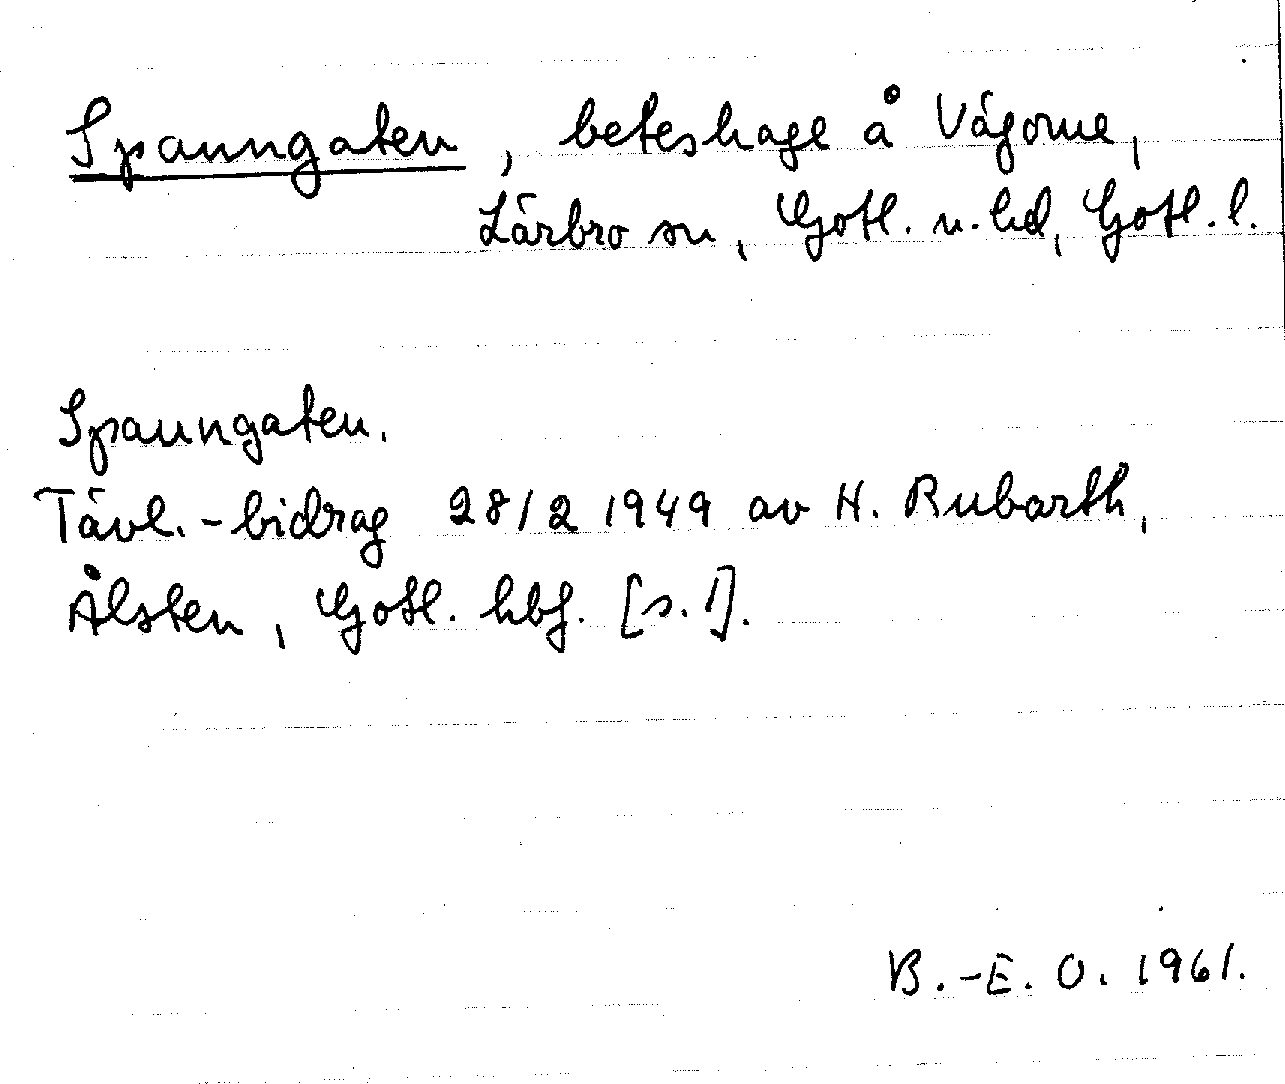 Spanngaten, beteshage å Vägome,
Lärbro sn, Gotl. n. hd, Gotl. l.
Spanngaten.
Tävl.-bidrag 28/2 1949 av H. Rubarth,
Ålsten, Gotl. hbf. [s. 1].
B.-E. O. 1961.